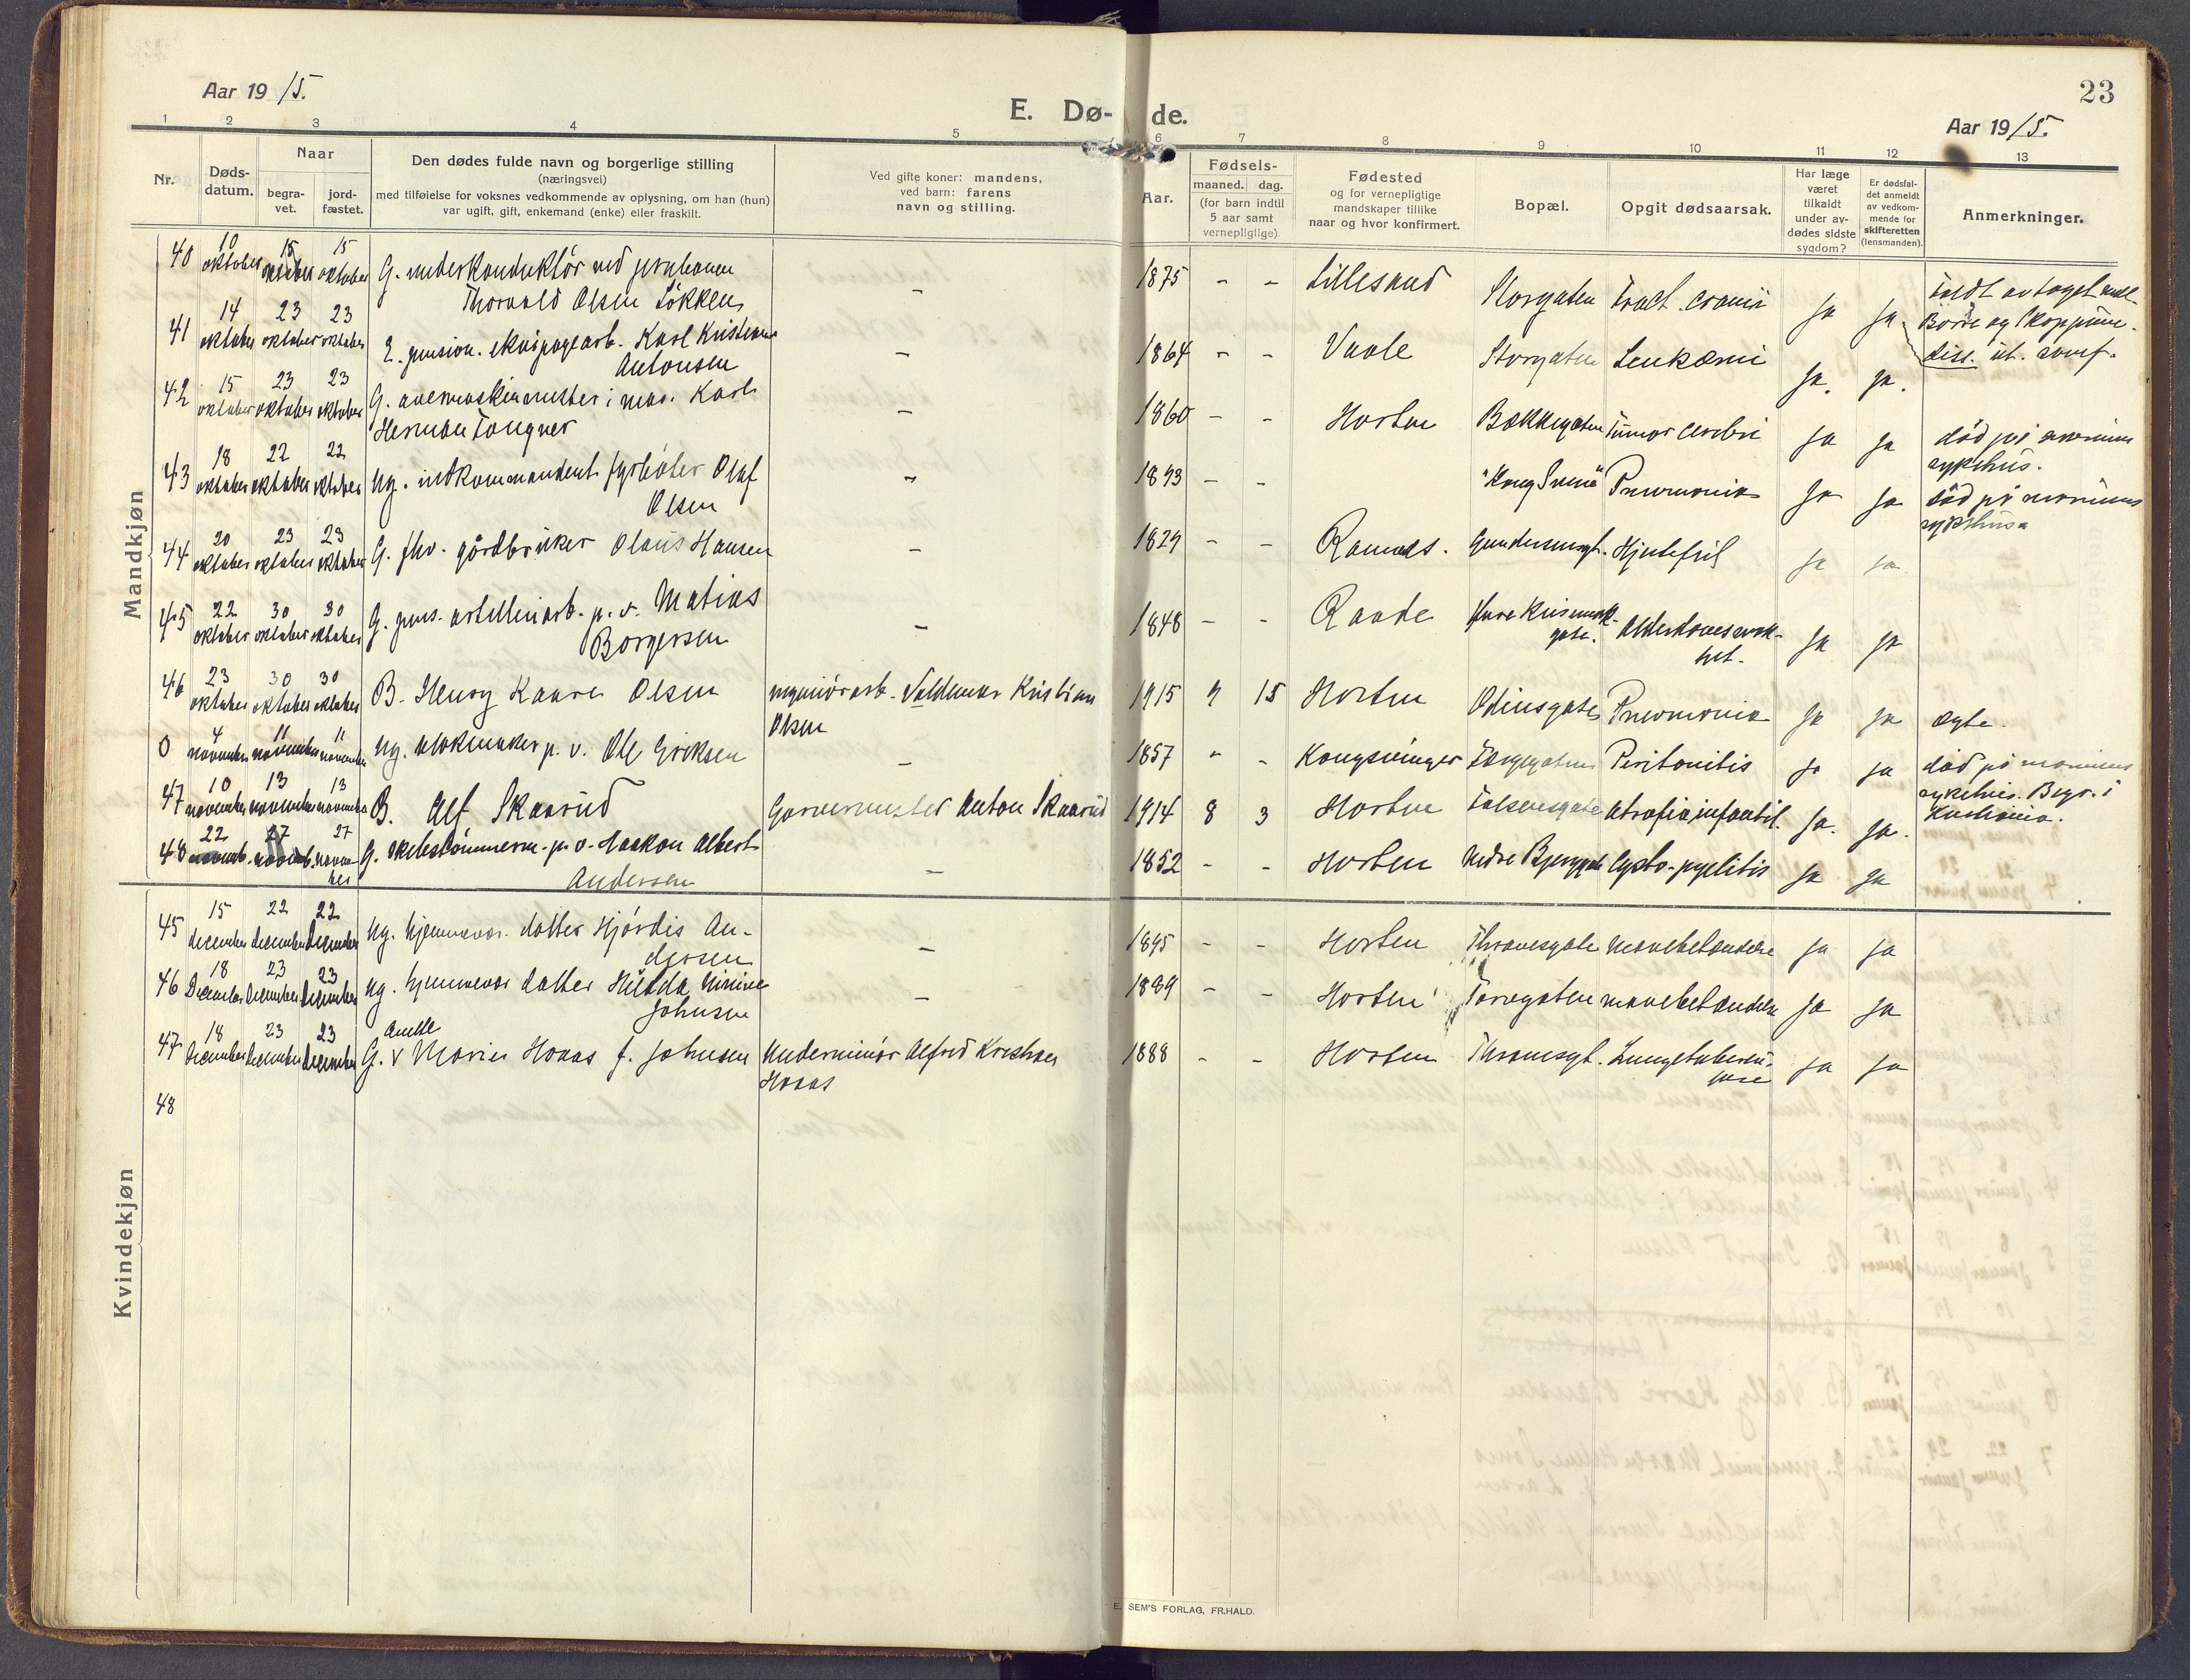 Aar 1915.
E. Dø- de.
23
Aar 1915.
1 2 3 4 5 6 7 8 9 10 11 12 13
Nr.
Døds-
datum.
Naar
begra-
vet.
jord-
fæstet.
Den dødes fulde navn og borgerlige stilling
(næringsvei)
med tilføielse for voksnes vedkommende av oplysning, om han (hun)
var ugift, gift, enkemand (enke) eller fraskilt.
Ved gifte koner: mandens,
ved barn: farens
navn og stilling.
Aar.
Fødsels-
maaned. dag.
(for barn indtil
5 aar samt
vernepligtige)
Fødested
og for vernepligtige
mandskaper tillike
naar og hvor konfirmert.
Bopæl.
Opgit dødsaarsak.
Har læge
været
tilkaldt
under av-
dødes sidste
sygdom?
Er dødsfal-
det anmeldt
av vedkom-
mende for
skifteretten
(lensmanden).
Anmerkninger.
Mandkjøn
40 10 oktober 15 oktober 15 oktober G. underkonduktør ved jernbanen
Thorvald Olsen Løkken - 1875 - - Lillesand Storgaten Fract. cranii ja ja
Borre og Skoppum.
41 14 oktober 23 oktober 23 oktober E. pension. ekvipagearb. Karl Kristian
Antonsen - 1864 - - Vaale Storgaten Leukæmi ja. ja.
42 15 oktober 23 oktober 23 oktober G. i mar. Karl
Herman Tangner - 1860 - - Horten Bækkegaten Tumor cerebri ja ja død på marinens
sykehus.
43 18 oktober 22 oktober 22 oktober Ug. indkommandert fyrbøter Olaf
Olsen - 1893 - - "Kong Sverre" Pneumonia ja ja død på marinens
sykehus
44 20 oktober 23 oktober 23 oktober G. fhv. gårdbruker Olaus Hansen - 1829 - - Ramnes. Gundersensgt. Hjertefeil ja ja
45 22 oktober 30 oktober 30 oktober G. pens. artilleriarb. p. v. Matias
Borgersen - 1848 - - Raade gate. Alderdomssvak-
het. ja ja
46 23 oktober 30 oktober 30 oktober B. Henry Kaare Olsen mineriørarb. Valdemar Kristian
Olsen 1915 7 15 Horten Odinsgate Pneumonia ja ja ægte.
0 4 november 11 november 11 november Ug. blokmaker p. v. Ole Eriksen - 1857 - - Kongsvinger Torvgaten Peritonitis ja ja død på marinens
sykehus. Begr. i
Kristiania.
47 10 november 13 november 13 november B. Alf Skaarud Garvermester Anton Skaarud 1914 8 3 Horten Falsensgate Atrofia infantil. ja. ja.
48 22 novemb. 27 novemb. 27 novem-
ber G. skibstømmerm. p. v. Haakon Albert
Andersen - 1852 - - Horten Nedre Bjerggate Cysto-pyelitis ja ja
Kvindekjøn
45 15 december 22 december 22 december Ug. hjemmevær. datter Hjørdis An-
dersen - 1895 - - Horten Thranesgate mavebetændelse ja ja
46 18 December 23 December 23 December Ug. hjemmevær datter Hilda Minine
Johnsen - 1889 - - Horten Torvgaten mavebetændelse ja ja
47 18 December 23 December 23 December G. v Marie Haaas f. Johnsen Underminør Alfred Kristian
Haaas 1888 - - Horten Thranesgt. Lungetuberku-
lose ja ja
48
E. SEM'S FORLAG, FR.HALD.